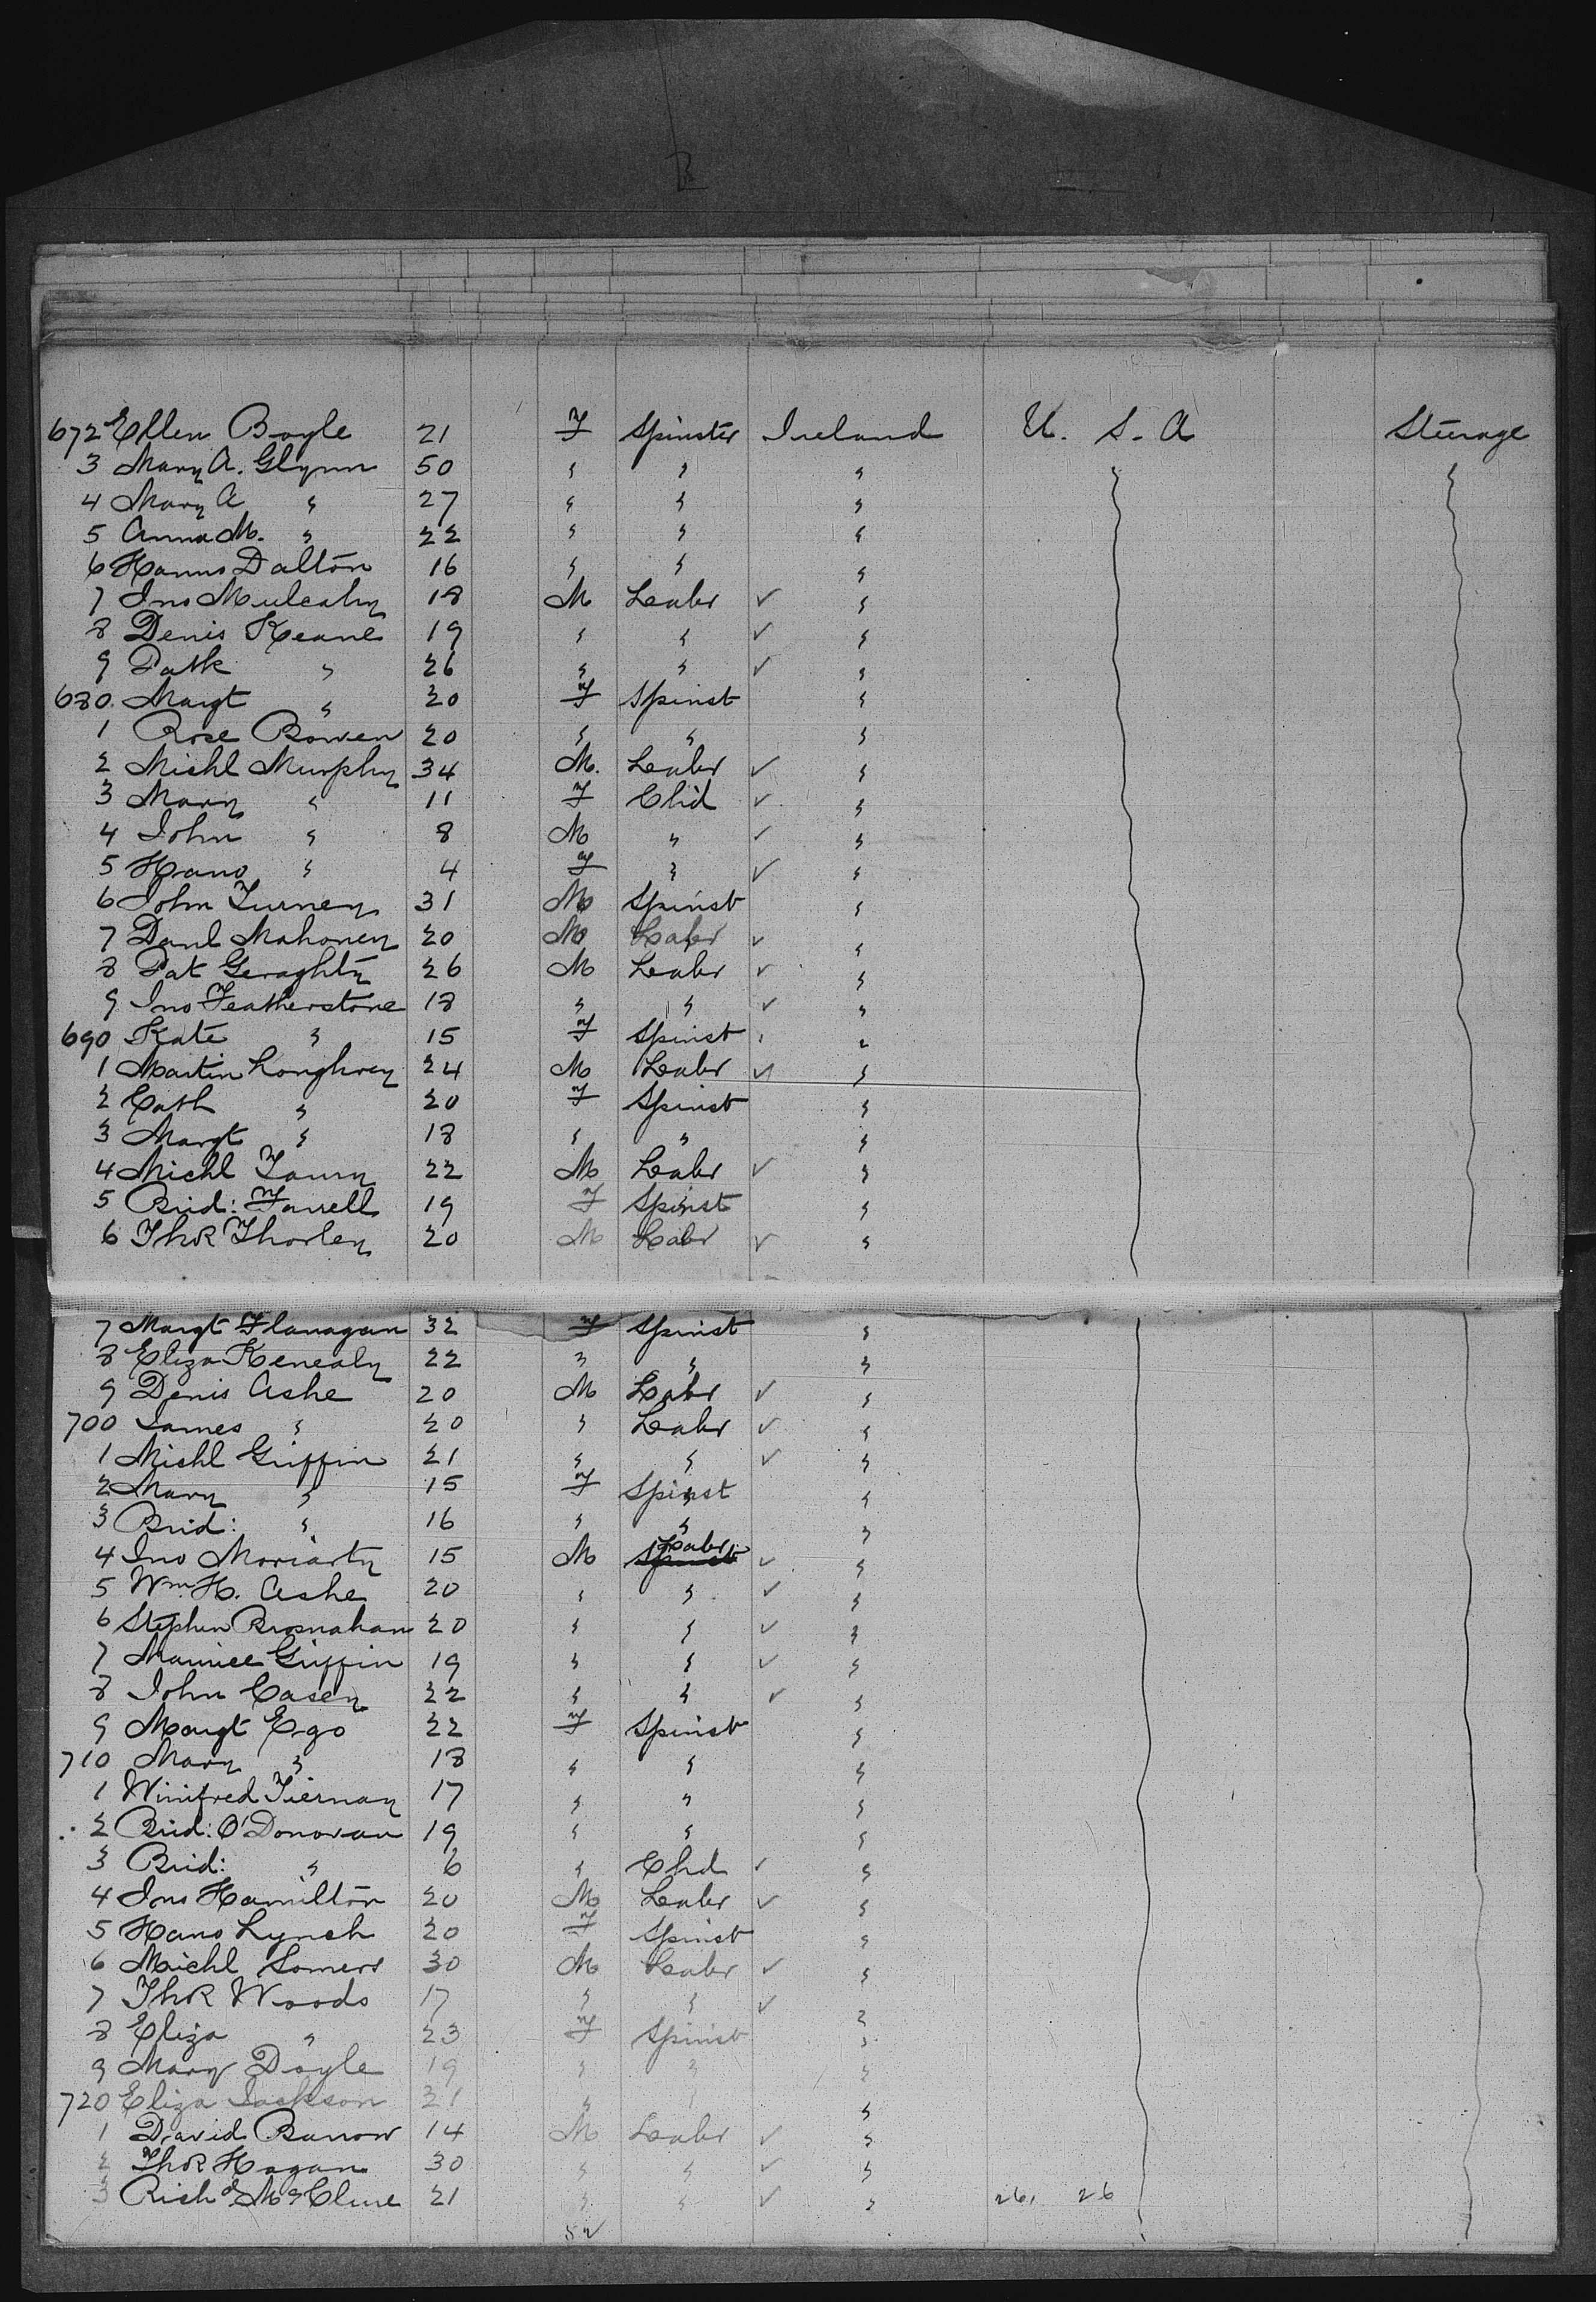 672 Ellen Boyle 21 F Spinster Ireland U. S. A Steerage
3 Mary A. Glynn 50 " " " " "
4 Mary A " 27 " " "
5 Anna M. " 22 " " "
6 Hanno Dalton 16 " " "
7 Jno Mulcahy 18 M Labr ✓ "
8 Denis Keane 19 " " ✓ "
9 Patk " 26 " " ✓ "
680. Margt " 20 F Spinst "
1 Rose Bowen 20 " " "
2 Michl Murphy 34 M. Labr ✓ "
3 Mary " 11 F Chd ✓ "
4 John " 8 M " ✓ "
5 Hano " 4 F " ✓ "
6 John Turney 31 M Spinst "
7 Danl Mahoney 20 M Labr ✓ "
8 Pat Geraghty 26 M Labr ✓ "
9 Jno Featherstone 18 " " ✓ "
690 Kate " 15 F Spinst "
1 Martin Loughrey 24 M Labr ✓ "
2 Cath " 20 F Spinst "
3 Margt " 18 " " "
4 Michl 22 M Labr ✓ "
5 Brid: Farrell 19 F Spinst "
6 Thos Thorley 20 M Labr ✓ "
7 Margt Flanagan 32 F Spinst "
8 Eliza Kenealy 22 " " "
9 Denis Ashe 20 M Labr ✓ "
700 James " 20 " Labr ✓ "
1 Michl Griffin 21 " " ✓ "
2 Mary " 15 F Spinst "
3 Brid: " 16 " " "
4 Jno Moriarty 15 M Spinst Labr ✓ "
5 Wm H. Ashe 20 " " ✓ "
6 Stephen Brosnahan 20 " " ✓ "
7 Maurice Griffin 19 " " ✓ "
8 John Casey 22 " " ✓ "
9 Margt Ego 22 F Spinst "
710 Mary " 18 " " "
1 Winifred Tiernay 17 " " "
2 Brid: O'Donovan 19 " " "
3 Brid: " 6 " Chd ✓ "
4 Jno Hamilton 20 M Labr ✓ "
5 Hano Lynch 20 F Spinst "
6 Michl Somers 30 M Labr ✓ "
7 Thos Woods 17 " " ✓ "
8 Eliza " 23 F Spinst "
9 Mary Doyle 19 " " "
720 Eliza Jackson 21 " " "
1 David Barrow 14 M Labr ✓ "
2 Thos Hogan 30 " " ✓ "
3 Richd McClure 21 " " ✓ " 26, 26